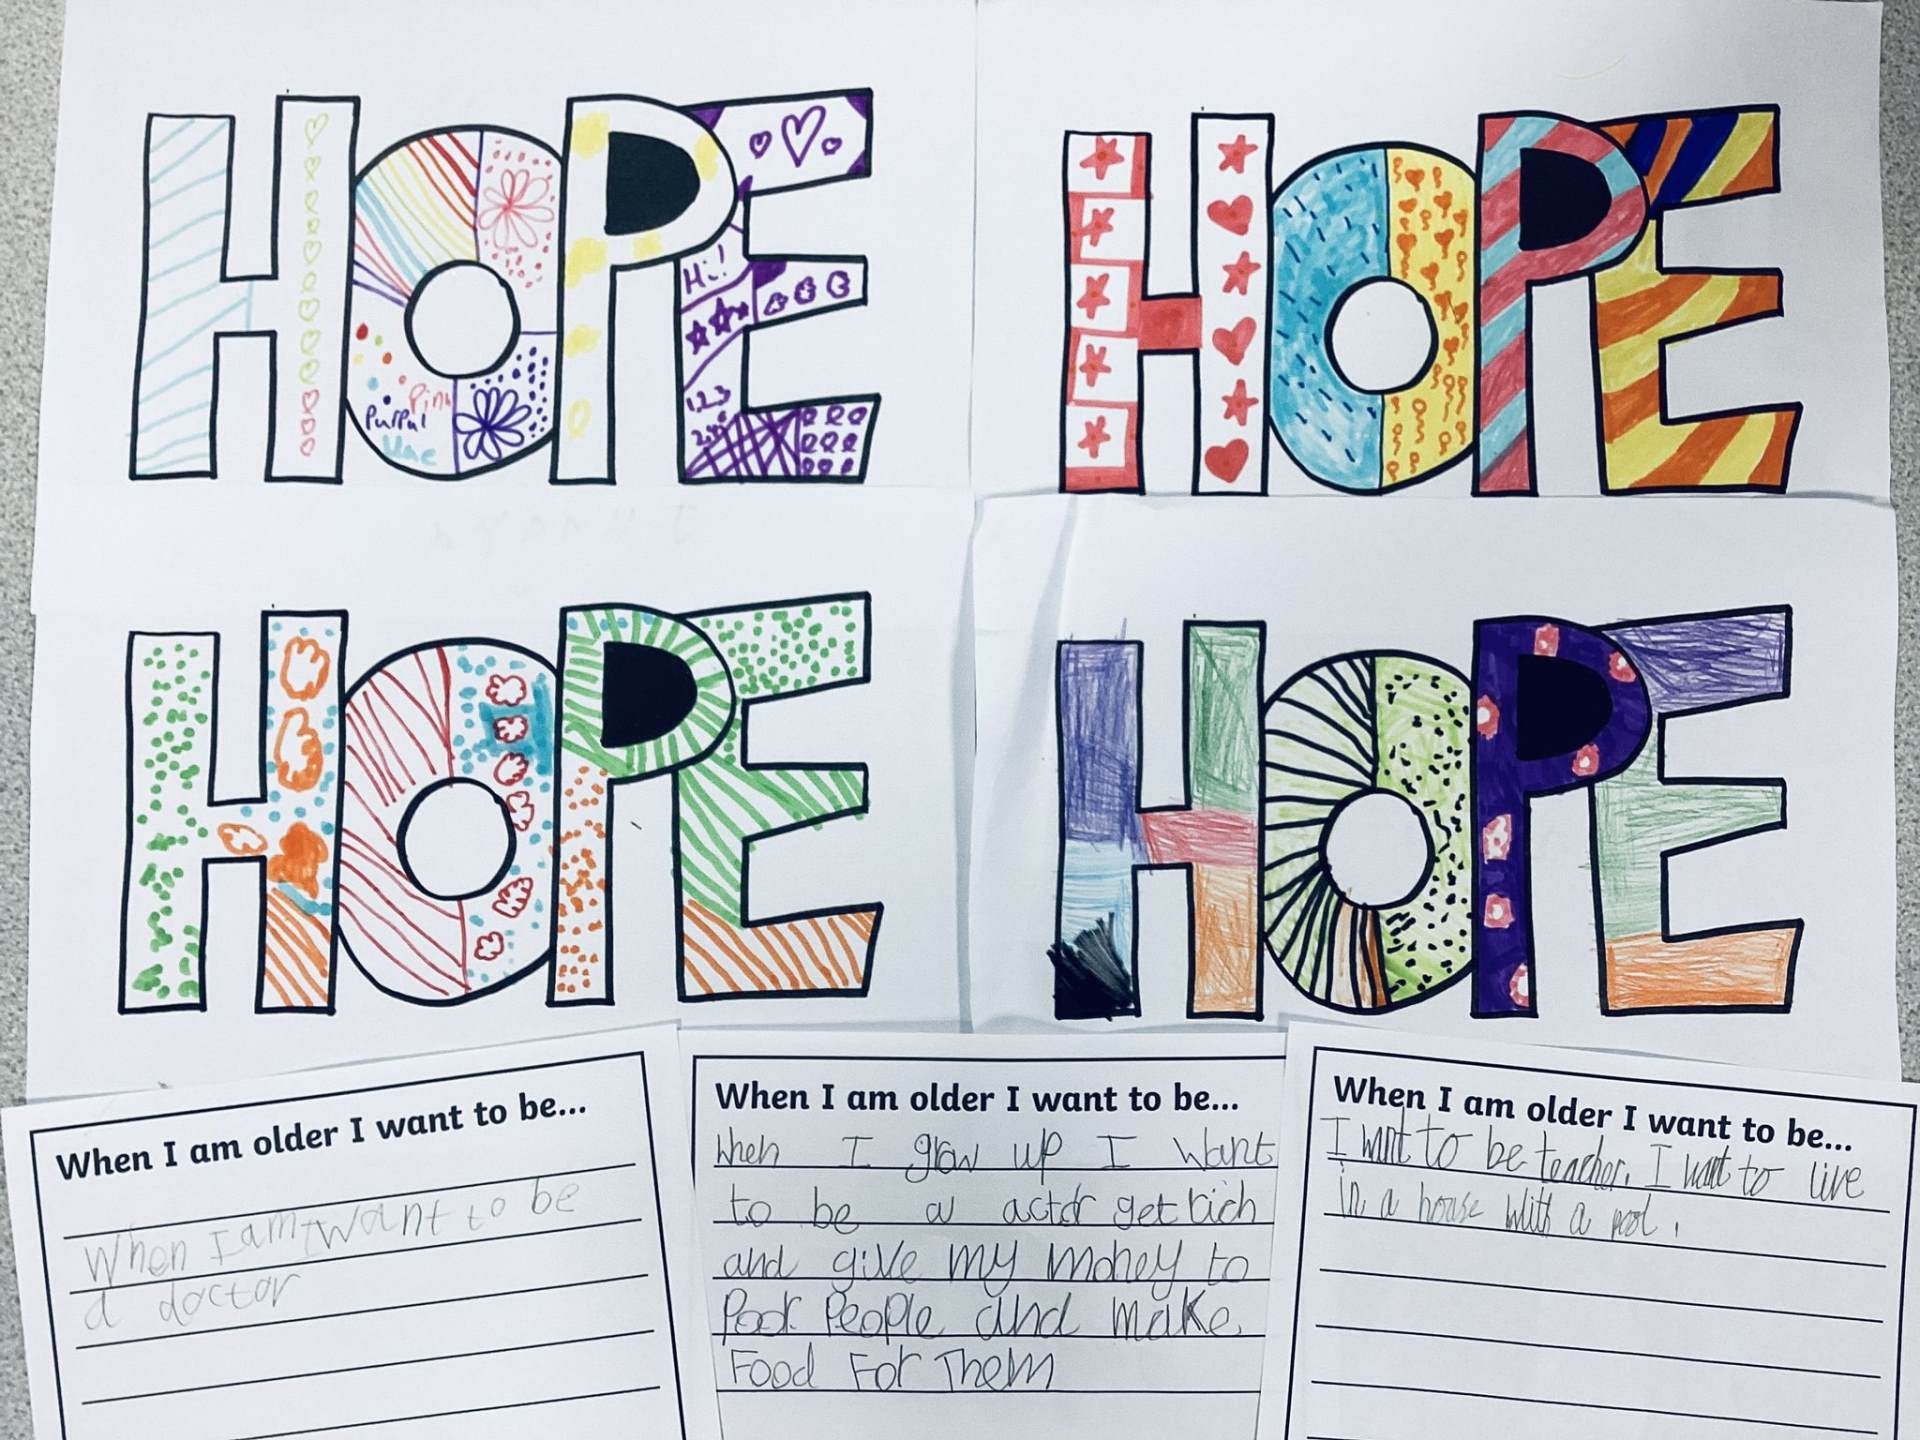 HOPE
Hi!
1,2,3
Pink
Purpul
HOPE
HOPE
HOPE
When I am older I want to be...
When I am I want to be
a doctor
When I am older I want to be...
When I grow up I want
to be a actor get rich
and give my money to
Poor People and make
Food For Them
When I am older I want to be...
I want to be teacher. I want to live
in a house with a pool.